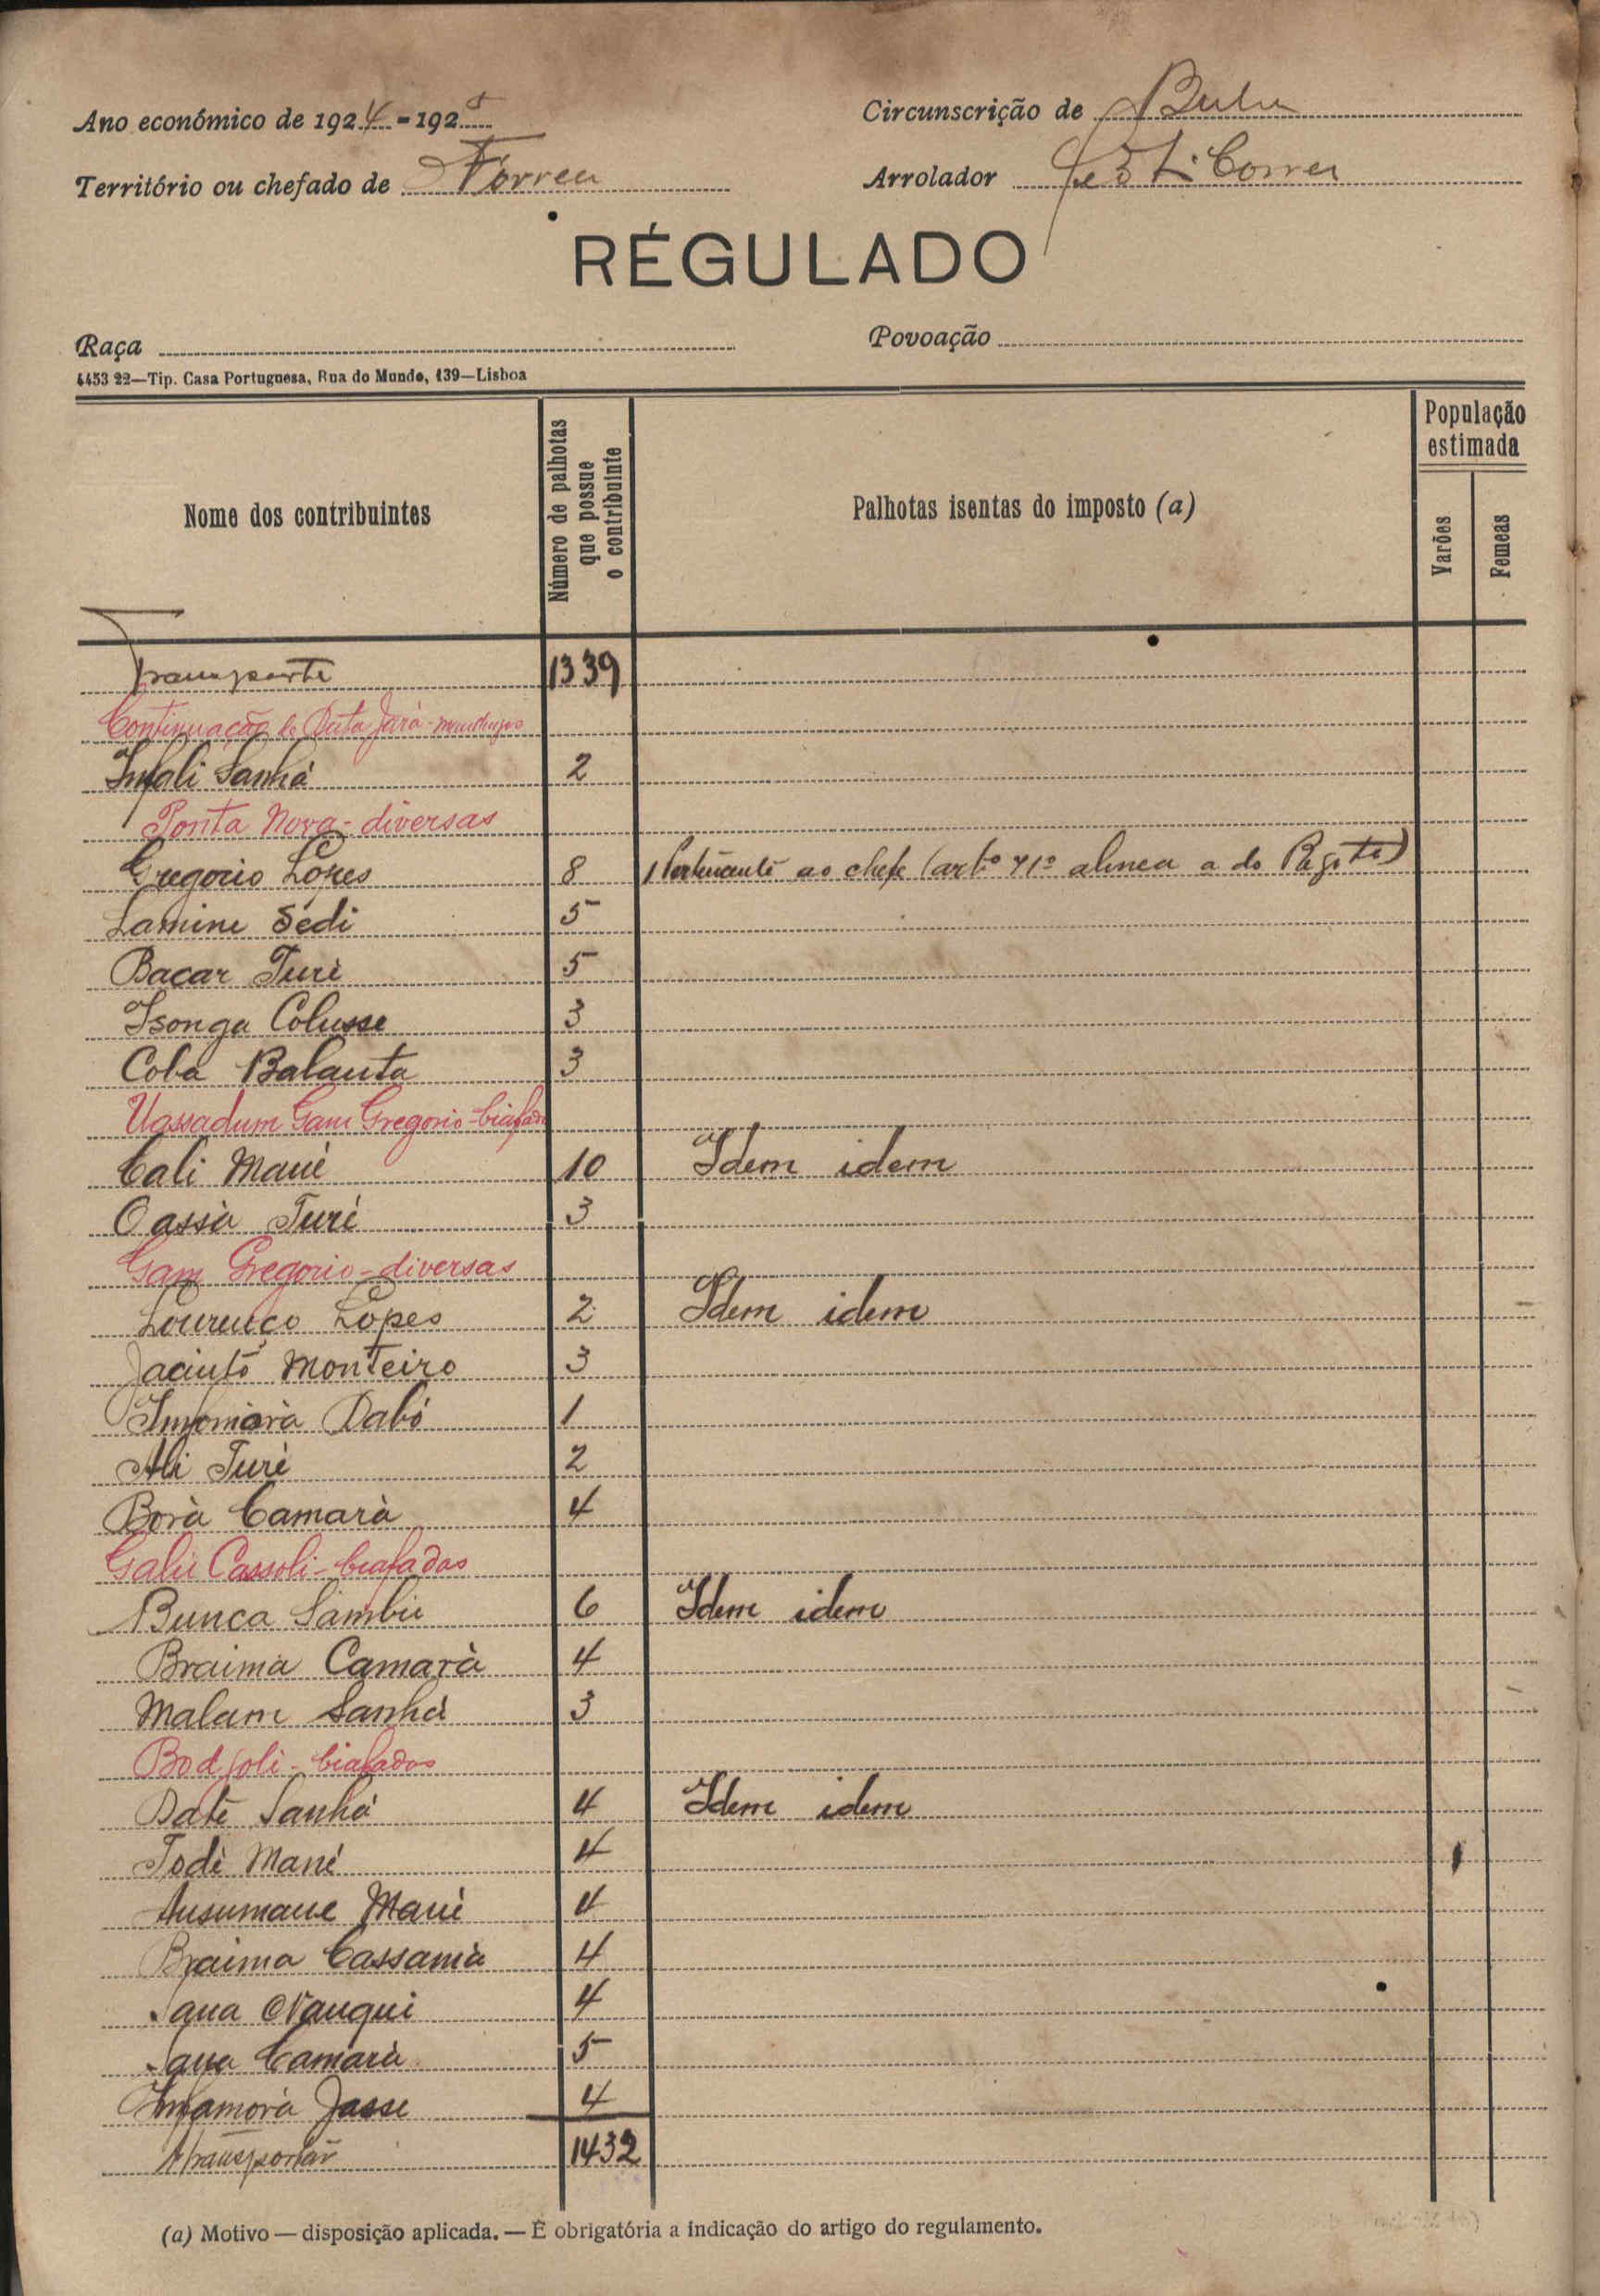 Ano económico de 1924-1925
Circunscrição de Buba
Território ou chefado de Forrea
Arrolador Correa
RÉGULADO
Raça
Povoação
4453 22—Tip. Casa Portuguesa, Rua do Mundo, 139—Lisboa
Nome dos contribuintes
Número de palhotas que possue o contribuinte
Palhotas isentas do imposto (a)
População estimada
Varões
Femeas
Transporte 1339
Continuação de Data Jará-mandingas
Infali Sanhá 2
Ponta Nova-diversas
Gregorio Lopes 8 1 Pertencente ao chefe (artº 71º alinea a do Regto)
Lamine Sedi 5
Bacar Turé 5
Isonga Colusse 3
Coba Balanta 3
Uassadum Gam Gregorio-biafadas
Cali Mané 10 Idem idem
Oassà Turé 3
Gam Gregorio-diversas
Lourenço Lopes 2 Idem idem
Jacinto Monteiro 3
Dabó 1
Ali Turé 2
Borà Camarà 4
Galu Cassoli-biafadas
Bunca Sambu 6 Idem idem
Braima Camarà 4
Malam Sanhá 3
Bodjoli-biafadas
Daté Sanhá 4 Idem idem
Todé Mané 4
Ansumane Mané 4
Braima Cassamà 4
Sana Nanqui 4
Sana Camarà 5
Infamorà Jasse 4
A transportar 1432
(a) Motivo — disposição aplicada. — É obrigatória a indicação do artigo do regulamento.